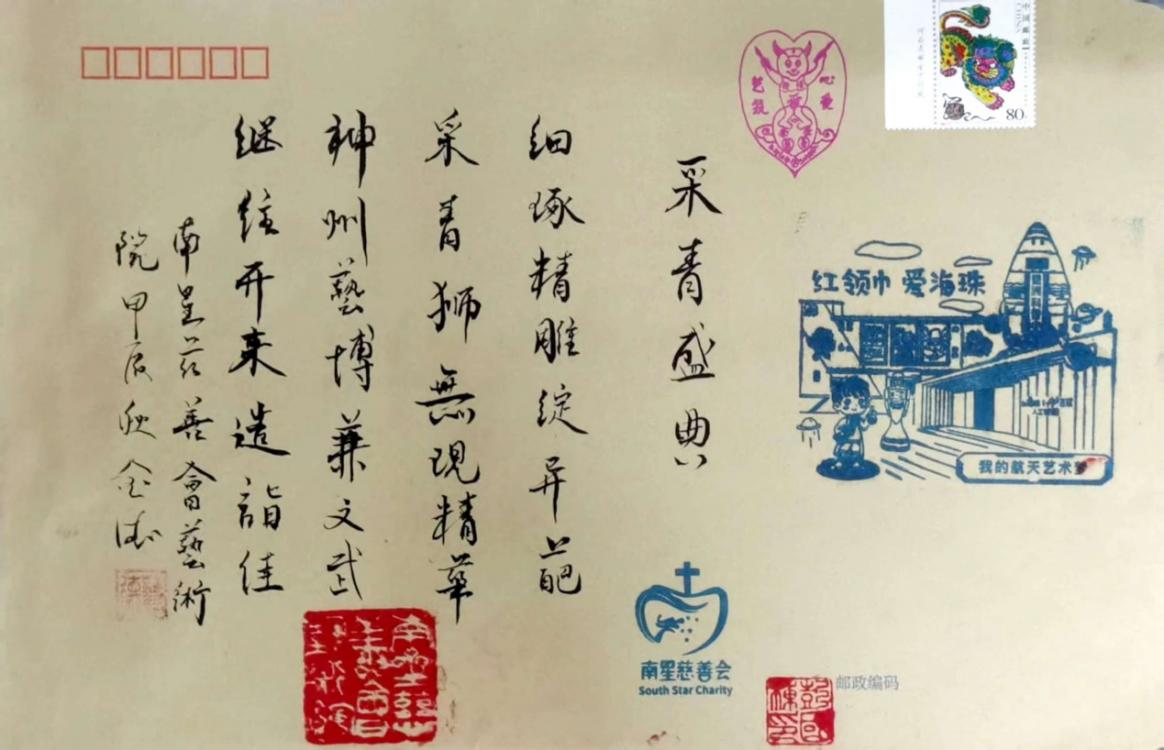 中国邮政
80
红领巾 爱海珠
我的航天艺术梦
采青盛典
细琢精雕綻异葩
采青狮無现精華
神州藝博兼文武
继往开来造詣佳
南星慈善會藝術
院甲辰秋
南星慈善会
South Star Charity
邮政编码